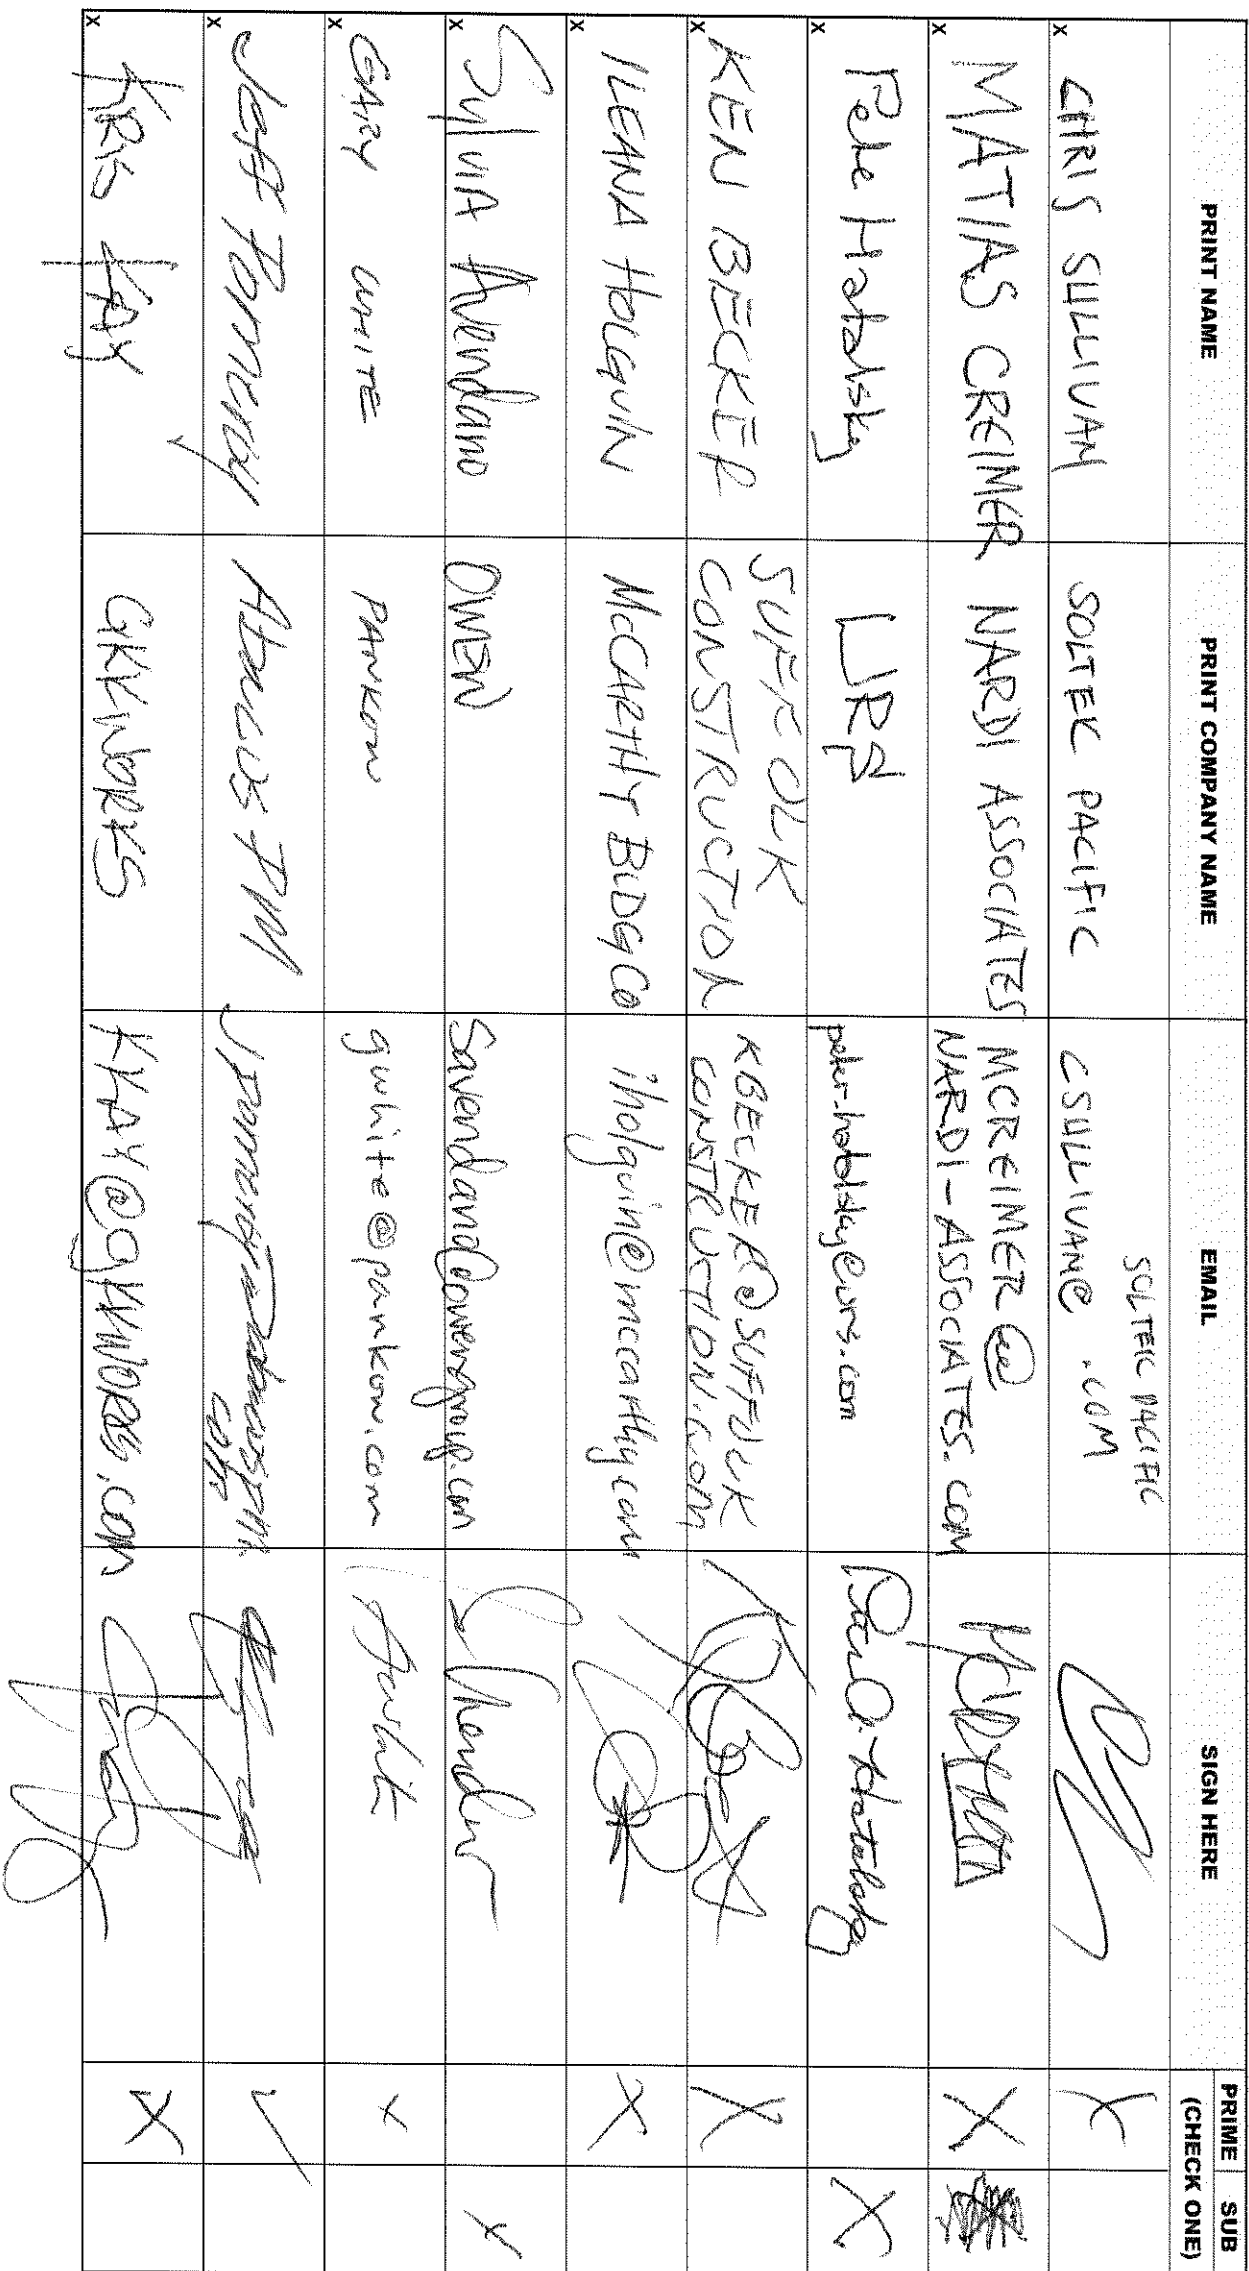 PRINT NAME PRINT COMPANY NAME EMAIL SIGN HERE PRIME SUB
(CHECK ONE)
X CHRIS SULLIVAN SOLTEK PACIFIC CSULLIVAN@ SOLTEK PACIFIC .COM X
X MATIAS CREIMER NARDI ASSOCIATES MCREIMER@
NARDI-ASSOCIATES.COM X
X Pete Hatalsky URS peter-hatalsky@urs.com X
X KEN BECKER SUFFOLK
CONSTRUCTION KBECKER@SUFFOLK
CONSTRUCTION.COM X
X ILEANA HOLGUIN McCARTHY BLDG Co iholguin@mccarthy.com X
Sylvia Avendano OWEN Savendano@owengroup.com X
X GARY WHITE PANKOW gwhite@pankow.com X
X Jeff Pomeroy Abacus PM Jpomeroy@abacuspm.
com ✓
X KRIS KAY GKKWORKS KKAY@GKKWORKS.COM X